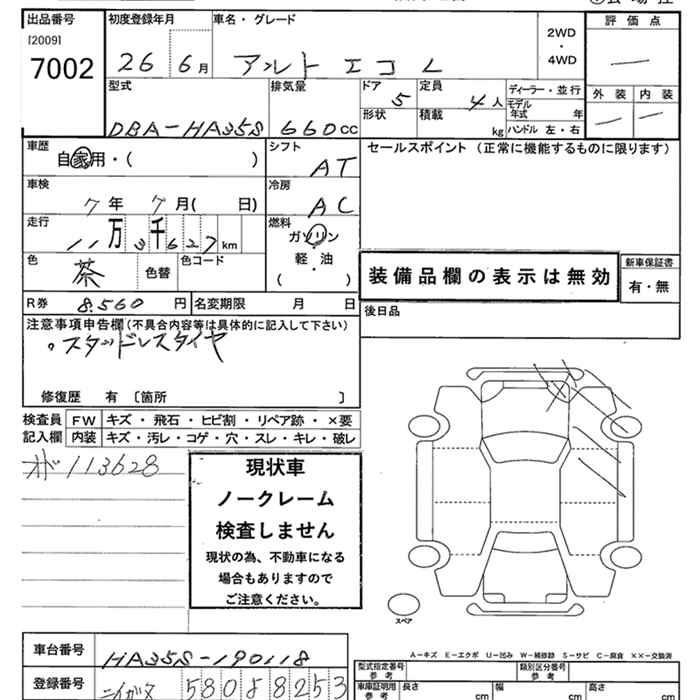 出品番号
[2009]
7002
初度登録年月
26 6月
車名・グレード
アルト エコ L
2WD
・
4WD
評価点
外装 内装
型式
DBA-HA35S
排気量
660cc
ドア
5
形状
定員
4人
積載
kg
ディーラー・並行
モデル年式 年
ハンドル 左・右
車歴
自家用・( )
シフト
AT
セールスポイント (正常に機能するものに限ります)
車検
7年 7月( 日)
冷房
AC
走行
11万3千627km
燃料
ガソリン
軽・油
( )
色
茶
色替
色コード
装備品欄の表示は無効
新車保証書
有・無
R券
8,560円
名変期限 月 日
後日品
注意事項申告欄(不具合内容等は具体的に記入して下さい)
。スタッドレスタイヤ
修復歴 有 [箇所 ]
検査員記入欄
FW キズ・飛石・ヒビ割・リペア跡・×要
内装 キズ・汚レ・コゲ・穴・スレ・キレ・破レ
オド113628
現状車
ノークレーム
検査しません
現状の為、不動車になる
場合もありますので
ご注意ください。
スペア
A-キズ E-エクボ U-凹み W-補修跡 S-サビ C-腐食 ××-交換済
車台番号
HA35S-190118
型式指定番号
参考
類別区分番号
参考
登録番号
580 8253
車庫証明用
参考
長さ cm
幅 cm
高さ cm